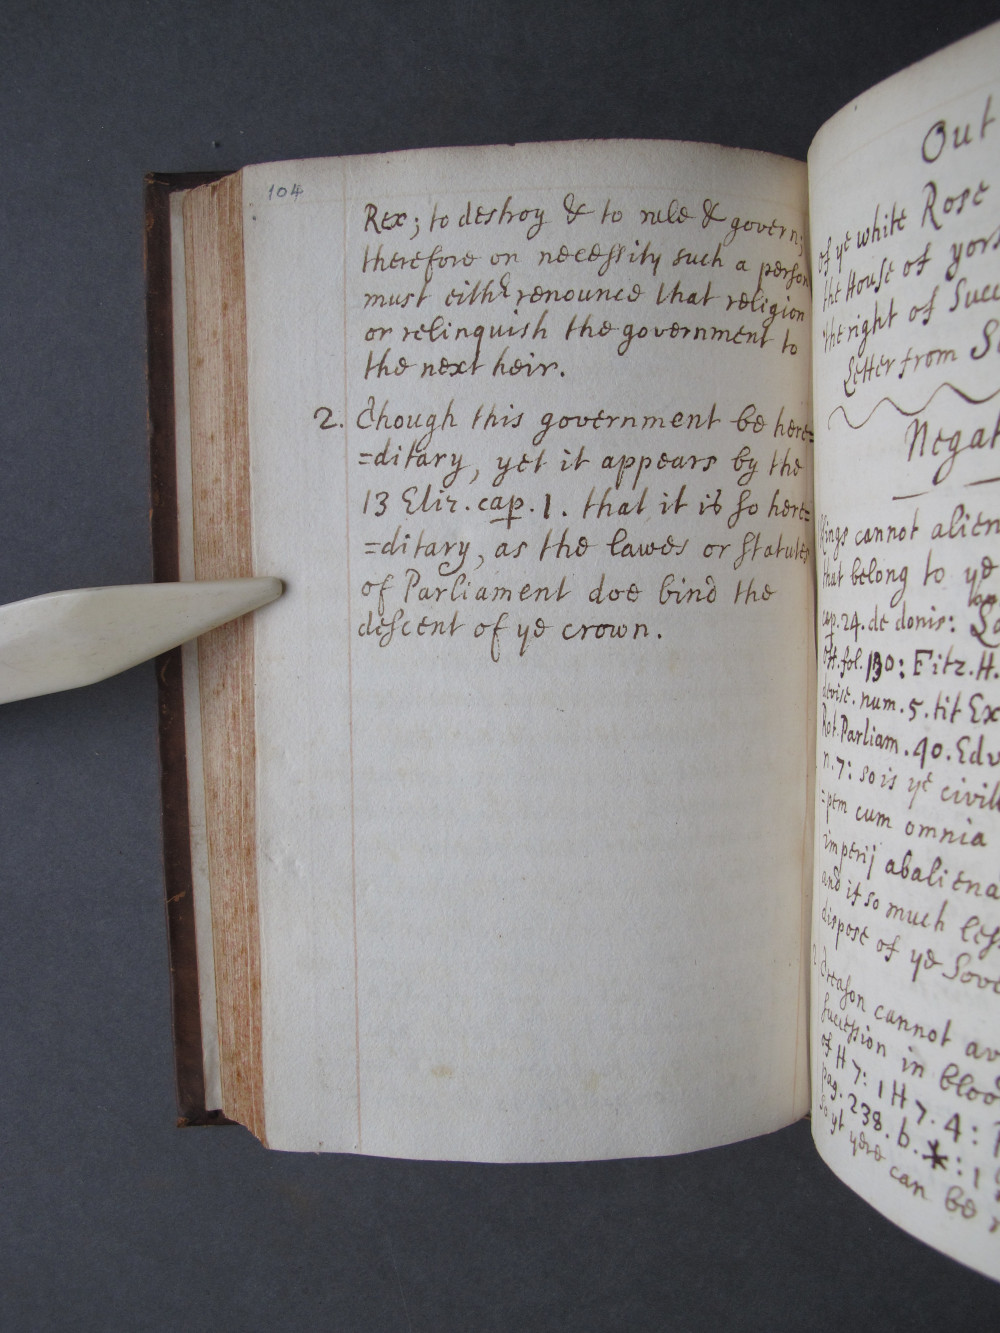 104
Rex; to destroy & to rule & govern;
therefore on necessity such a person
must eithr renounce that religion
or relinquish the government to
the next heir.
2. Though this government be here=
=ditary, yet it appears by the
13 Eliz. cap. 1. that it is so here=
=ditary, as the lawes or statutes
of Parliament doe bind the
descent of ye crown.
Out
of ye white Rose
the House of york
the right of Succ
Letter from
Negat
Kings cannot alien
that belong to ye
cap. 24. de donis:
fol. 130: Fitz. H.
devise. num. 5. tit Ex
Rot. Parliam. 40. Edv
n. 7: so is ye civill
=pem cum omnia
imperij abaliena
and if so much less
dispose of ye Sove
Treason cannot av
succession in blood
of H 7: 1 H 7. 4:
pag. 238. b. *: 1
so yt yere can be